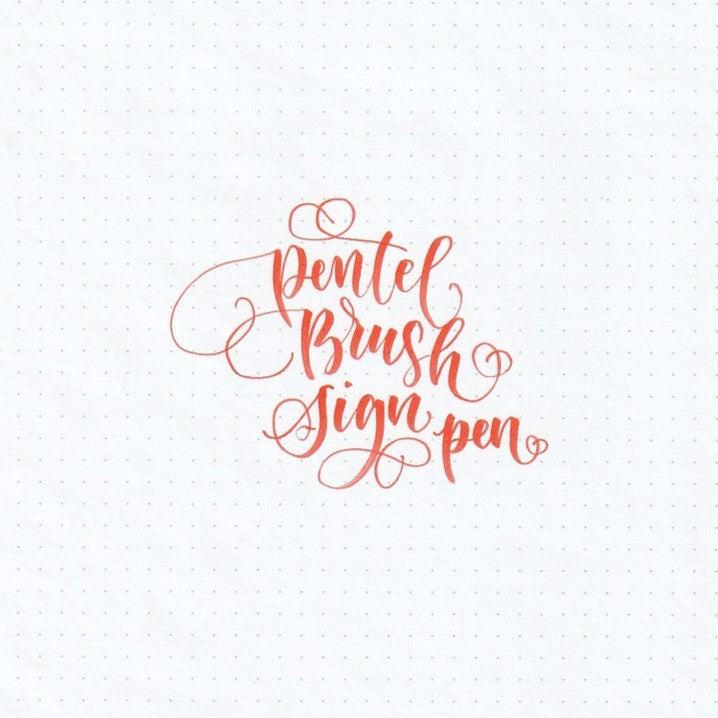 Pentel
Brush
Sign pen